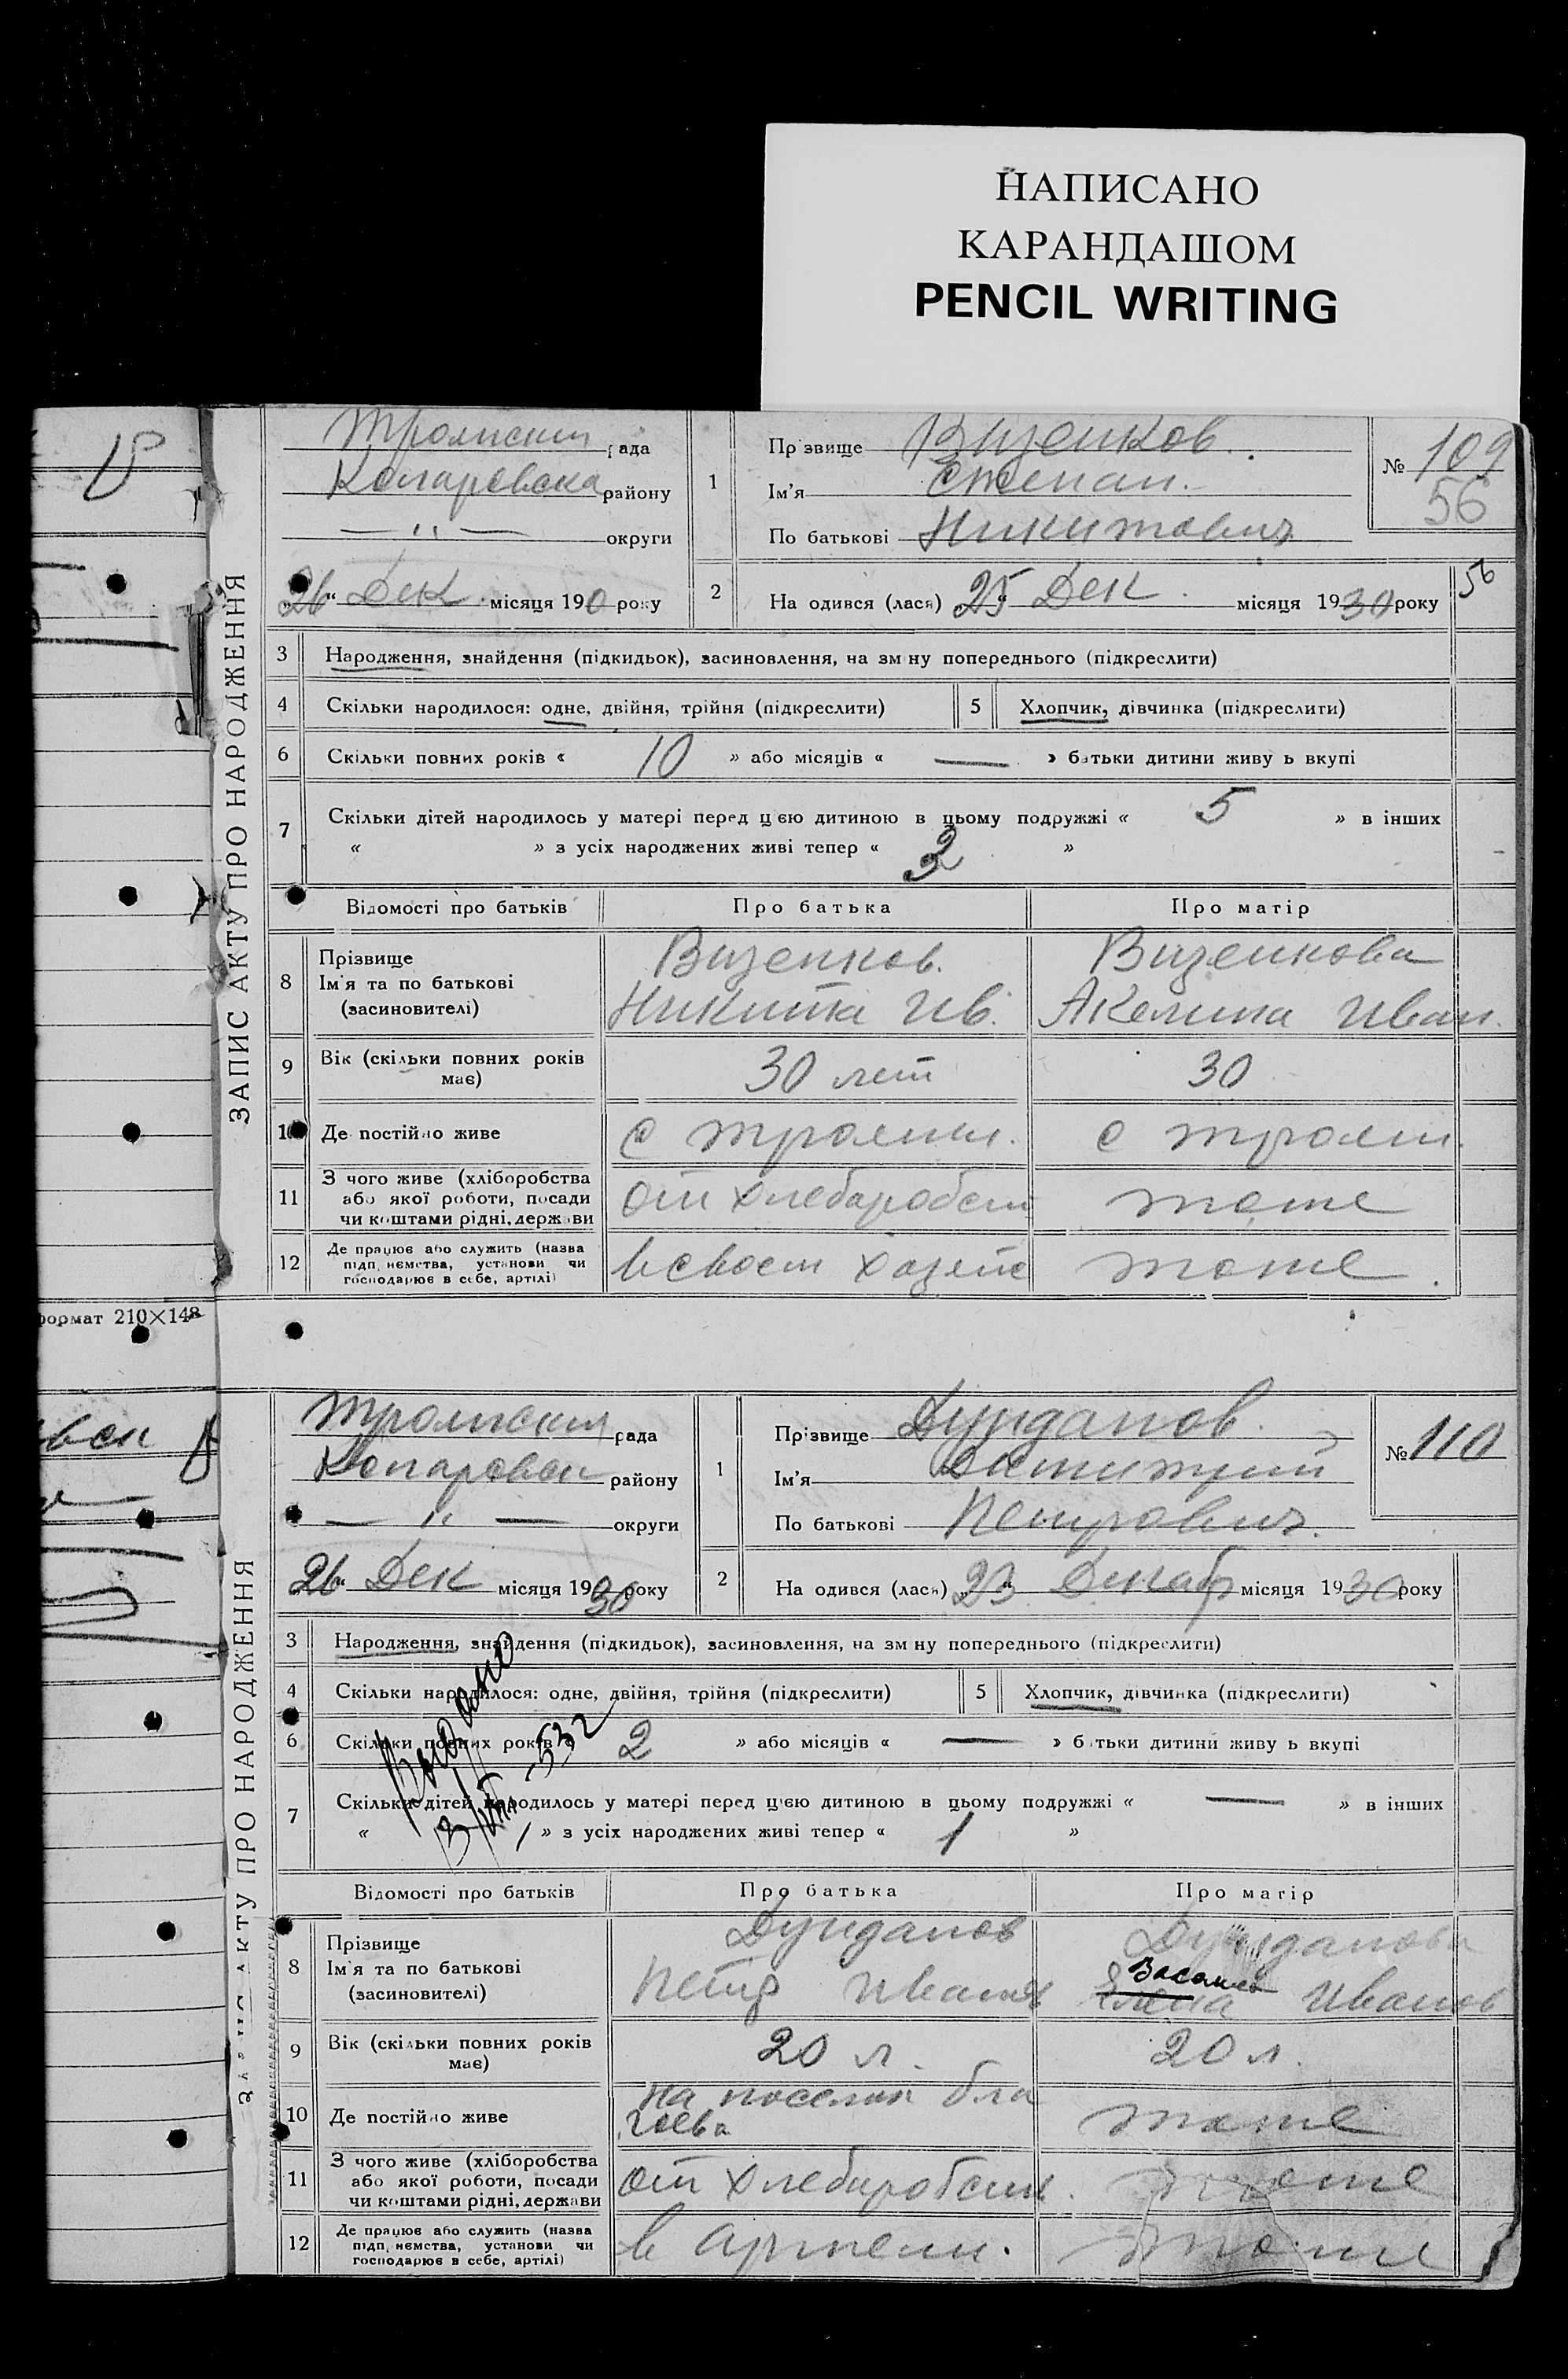 НАПИСАНО
КАРАНДАШОМ
PENCIL WRITING
ЗАПИС АКТУ ПРО НАРОДЖЕННЯ
рада
району
— " — округи
26 Дек. місяця 190 року
1
Пр звище Визенков.
Ім'я Степан.
По батькові Никитович
№ 109
56
2 На одився (лася) 25 Дек. місяця 1930 року
56
3 Народження, знайдення (підкидьок), засиновлення, на зм ну попереднього (підкреслити)
4 Скільки народилося: одне, двійня, трійня (підкреслити)
5 Хлопчик, дівчинка (підкреслити)
6 Скільки повних років « 10 » або місяців « — » батьки дитини живу ь вкупі
7 Скільки дітей народилось у матері перед ц єю дитиною в цьому подружжі « 5 » в інших
« » з усіх народжених живі тепер « »
Відомості про батьків Про батька Про матір
8 Прізвище
Ім'я та по батькові
(засиновителі)
Визенков.
Никита Ив.
Визенкова
Акелина Иван.
9 Вік (скільки повних років
має)
30 лет
30
10 Де постійно живе
11 З чого живе (хліборобства
або якої роботи, посади
чи коштами рідні, держави
от хлебаробст
тоже
12 Де працює або служить (назва
підп, ємства, установи чи
господарює в себе, артілі)
в своем хозяйс
тоже.
формат 210×148
ЗАПИС АКТУ ПРО НАРОДЖЕННЯ
рада
району
— " — округи
26 Дек місяця 1930 року
1
Пр звище Дунданов.
Ім'я Дмитрий
По батькові Петрович.
№ 110
2 На одився (лася) 23 Декабр місяця 1930 року
3 Народження, знайдення (підкидьок), засиновлення, на зм ну попереднього (підкреслити)
4 Скільки народилося: одне, двійня, трійня (підкреслити)
5 Хлопчик, дівчинка (підкреслити)
6 Скільки повних років « 2 » або місяців « — » б тьки дитини живу ь вкупі
7 Скільки дітей народилось у матері перед ц єю дитиною в цьому подружжі « — » в інших
« » з усіх народжених живі тепер « 1 »
Відомості про батьків Про батька Про матір
8 Прізвище
Ім'я та по батькові
(засиновителі)
Дунданов
Петр
Дунданова
Елена Иванов
9 Вік (скільки повних років
має)
20 л.
20 л.
10 Де постійно живе
на поселки бла
гоева
тоже
11 З чого живе (хліборобства
або якої роботи, посади
чи коштами рідні, держави
от хлебаробств.
тоже
12 Де працює або служить (назва
підп, ємства, установи чи
господарює в себе, артілі)
в артели.
тоже